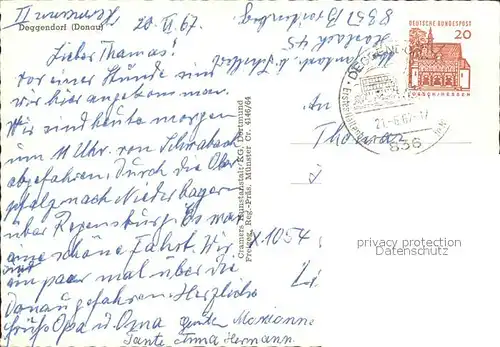 II
20. VI. 67.
Deggendorf (Donau)
Lieber Thomas!
vor einer Stunde sind
wir hier angekommen.
Wir sind heute morgen
um 11 Uhr von Schwabach
abgefahren. Durch die Ober
pfalz nach Niederbayern
über Regensburg. Es war
eine schöne Fahrt. Wir
sind ein paar mal über die
Donau gefahren. Herzliche
Grüße Opa u Oma Marianne
Tante Anna Hermann
Cramers Kunstanstalt KG, Dortmund
Freigeg. Reg.-Präs. Münster Cr. 4146/64
8351
45
DEUTSCHE BUNDESPOST
20
LORSCH/HESSEN
DEGGENDORF
21.-6.67-17
836
An
Thomas
X1054
privacy protection
Datenschutz